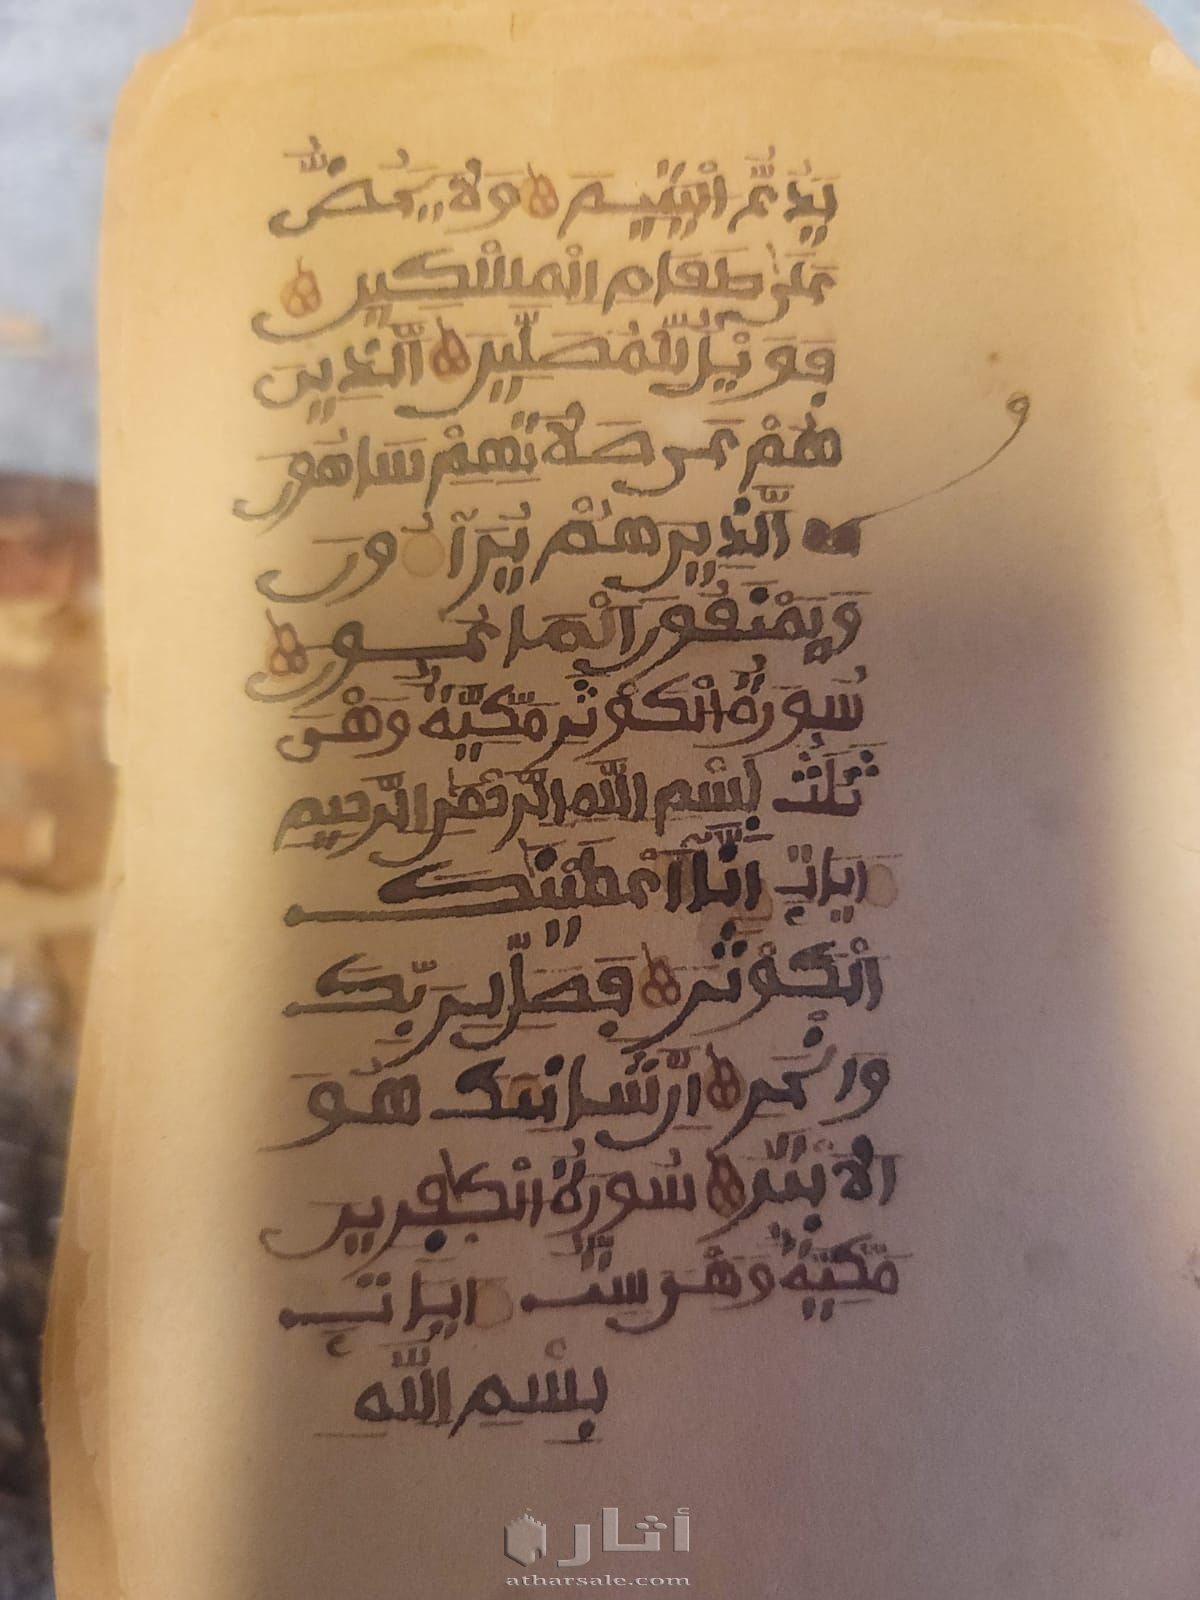 يَدُعُّ الْيَتِيمَ وَلَا يَحُضُّ
عَلَىٰ طَعَامِ الْمِسْكِينِ
فَوَيْلٌ لِّلْمُصَلِّينَ الَّذِينَ
هُمْ عَن صَلَاتِهِمْ سَاهُونَ
الَّذِينَ هُمْ يُرَآءُونَ
و
وَيَمْنَعُونَ الْمَاعُونَ
سُورَةُ الْكَوْثَرِ مَكِّيَّةٌ وَهْىَ
ثَلَثُ بِسْمِ اللَّهِ الرَّحْمَٰنِ الرَّحِيمِ
ءايَاتٍ إِنَّآ أَعْطَيْنَٰكَ
الْكَوْثَرَ فَصَلِّ لِرَبِّكَ
وَانْحَرْ إِنَّ شَانِئَكَ هُوَ
الَابْتَرُ سُورَةُ الْكَٰفِرِينَ
مَكِّيَّةٌ وَهْوَ سِتُّ ءايَاتٍ
بِسْمِ اللَّهِ
أثار
atharsale.com